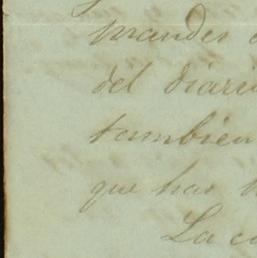 mandes
del diari
tambien
que has
La co